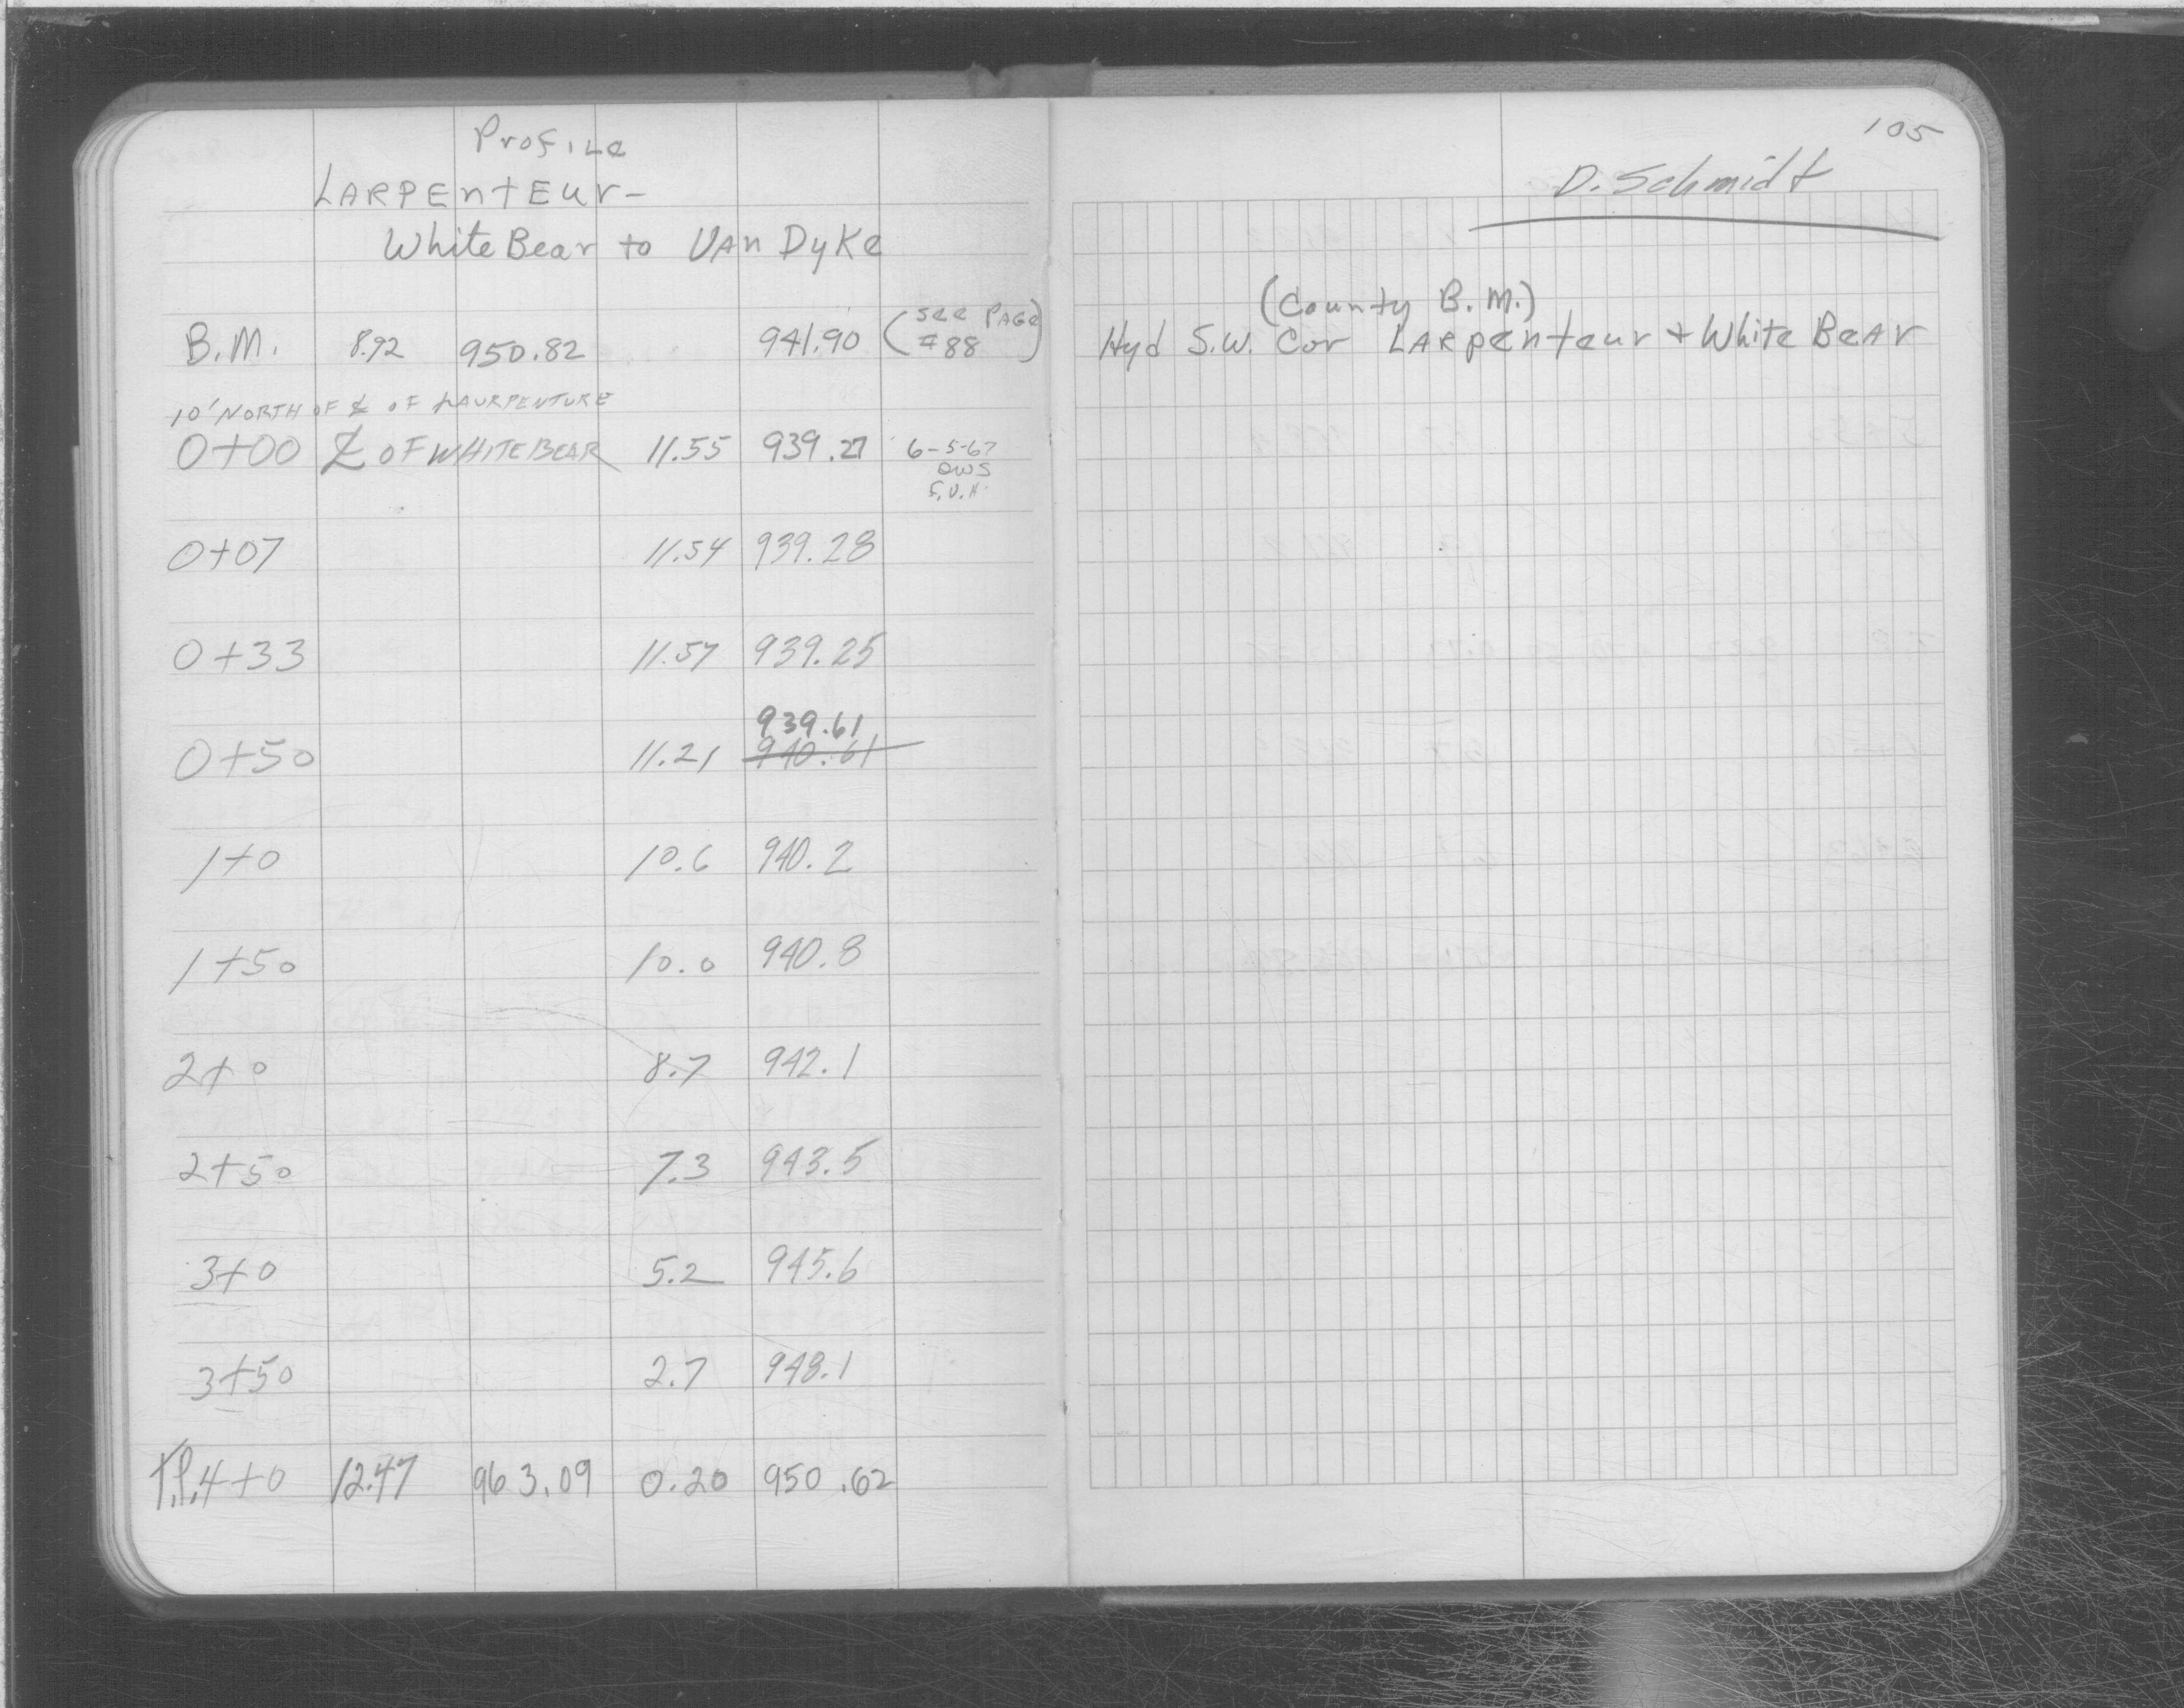 Profile
LARPENtEUr-
White Bear to VAn DyKe
B.M. 8.92 950.82 941.90 (see PAGe #88)
10' NORTH OF ℄ OF LAURPENTURE
0+00 ℄ OF WHITE BEAR 11.55 939.27 6-5-67
DWS
F.V.H.
0+07 11.54 939.28
0+33 11.57 939.25
939.61
0+50 11.21 940.61
1+0 10.6 940.2
1+50 10.0 940.8
2+0 8.7 942.1
2+50 7.3 943.5
3+0 5.2 945.6
3+50 2.7 948.1
T.P.4+0 12.47 963.09 0.20 950.62
105
D. Schmidt
(County B.M.)
Hyd S.W. Cor LARpenteur + White BeAr